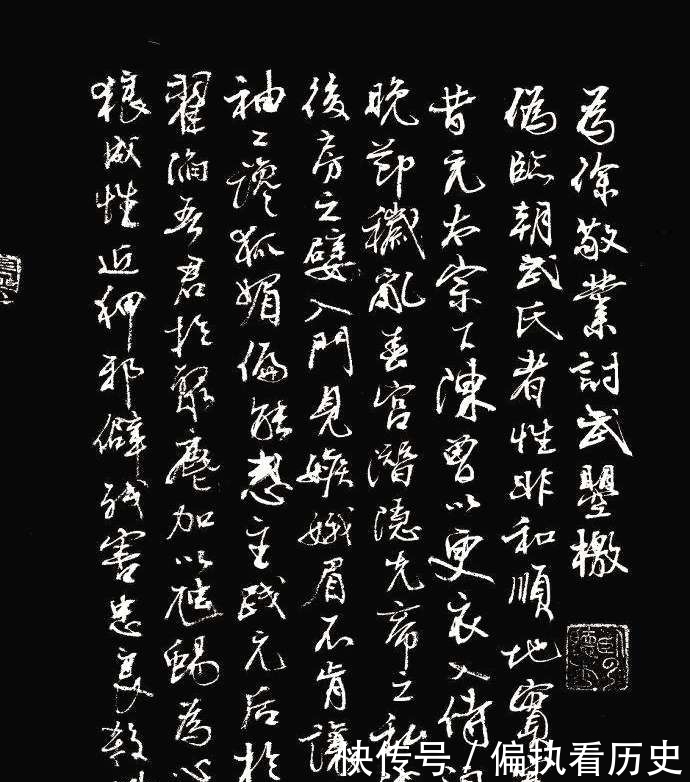 為徐敬業討武曌檄
偽臨朝武氏者性非和順地實
昔充太宗下陳曾以更衣入侍
晚節穢亂春宮潛隱先帝之私
後房之嬖入門見嫉娥眉不肯讓
袖工讒狐媚偏能惑主踐元后於
翟陷吾君於聚麀加以虺蜴為心
狼成性近狎邪僻殘害忠良殺
快传号/偏执看历史